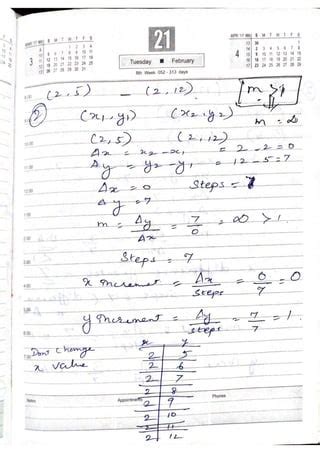 21
Tuesday ■ February
8th Week 052 - 313 days
3
4
(2,5) — (2,12)
m > 1
m = ∞
② (x₁,y₁) (x₂,y₂)
(2,5) (2,12)
Δx = x₂-x₁ = 2-2=0
Δy = y₂-y₁ = 12-5=7
Δx = 0 Steps = 7
Δy = 7
m = Δy/Δx = 7/0 = ∞ > 1
Steps = 7
x Increment = Δx/Steps = 0/7 = 0
y Increment = Δy/Steps = 7/7 = 1.
Dont change
x value
x y
2 5
2 6
2 7
2 8
2 9
2 10
2 11
2 12
Notes Appointments Phones